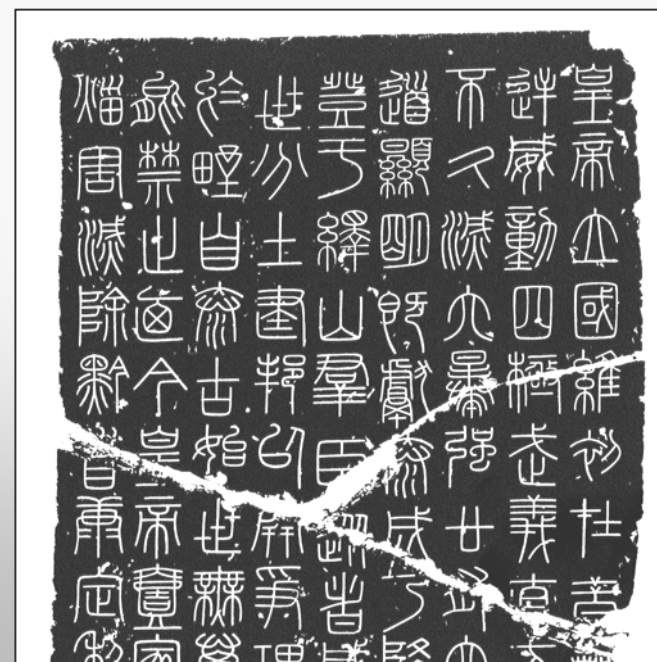 皇帝立國維初在昔
逆威動四極武義直
不久滅六暴強廿有六
道顯明既獻泰成乃降
登于繹山群臣從者咸
世分土建邦以開爭理
於野自泰古始世無萬
能禁止迺今皇帝壹家
災害滅除黔首康定利